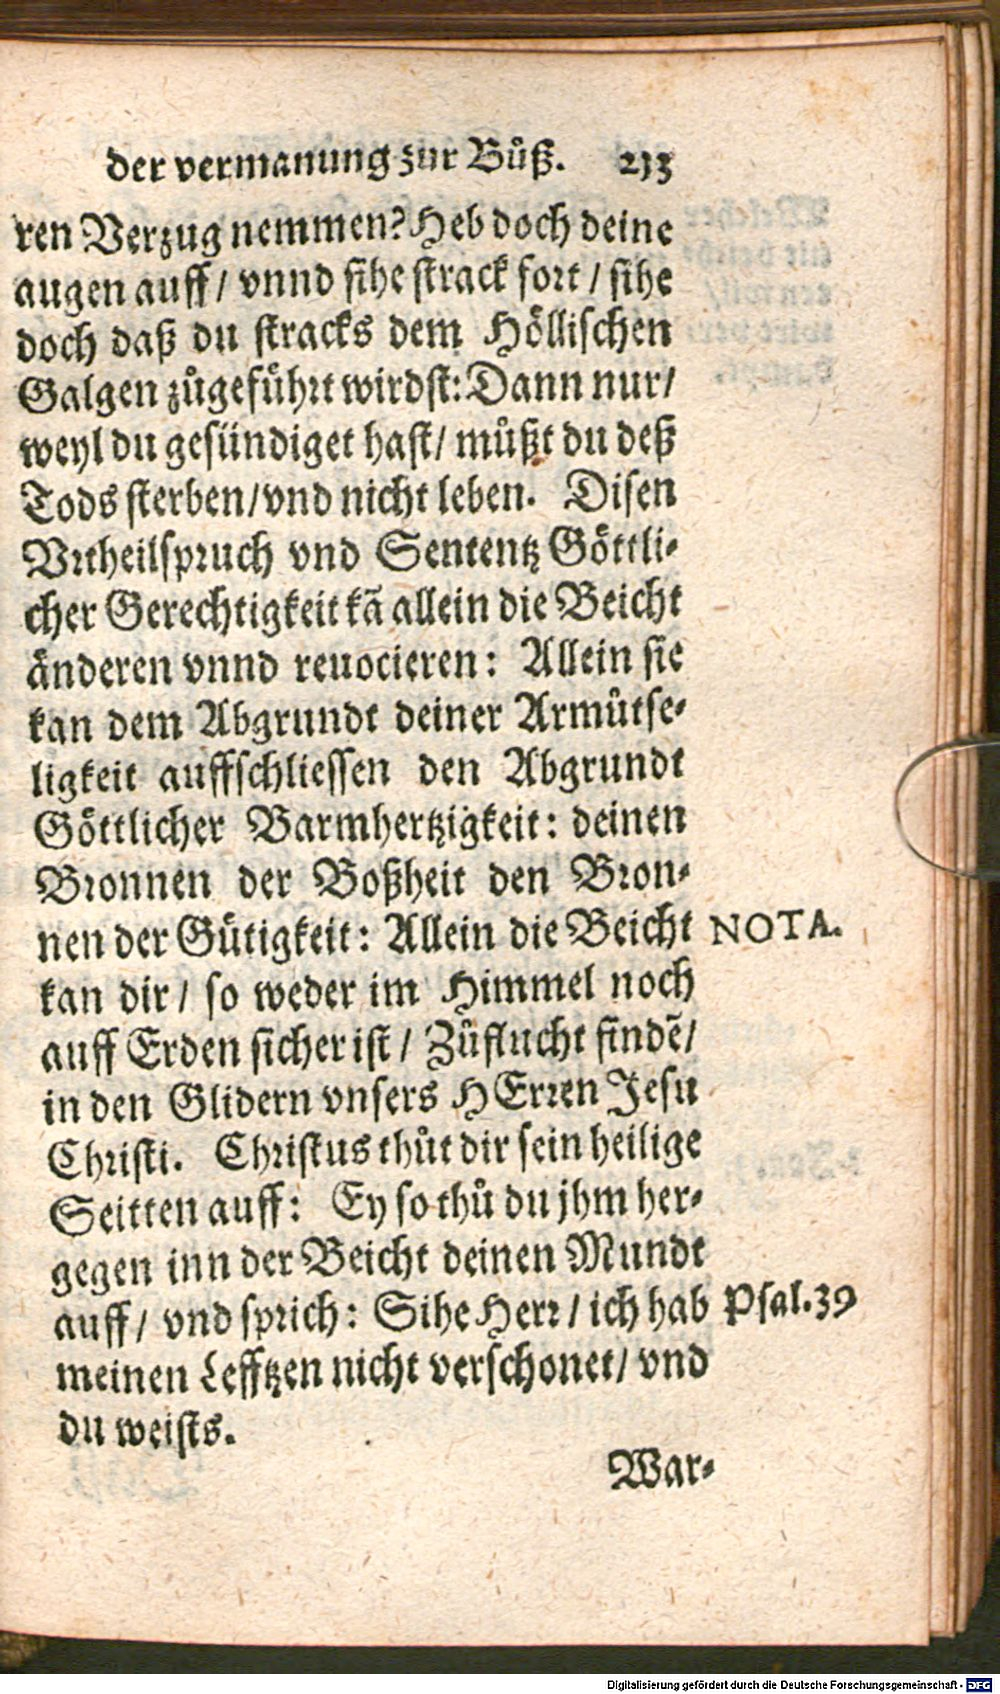 der vermanung zur Bůß. 233
ren Verzug nemmen? Heb doch deine
augen auff / vnnd sihe strack fort / sihe
doch daß du stracks dem Höllischen
Galgen zůgeführt wirdst: Dann nur /
weyl du gesündiget hast / můßt du deß
Tods sterben / vnd nicht leben. Disen
Vrtheilspruch vnd Sententz Göttli-
cher Gerechtigkeit kã allein die Beicht
änderen vnnd reuocieren: Allein sie
kan dem Abgrundt deiner Armůtse-
ligkeit auffschliessen den Abgrundt
Göttlicher Barmhertzigkeit: deinen
Bronnen der Boßheit den Bron-
nen der Gütigkeit: Allein die Beicht NOTA.
kan dir / so weder im Himmel noch
auff Erden sicher ist / Zůflucht findẽ /
in den Glidern vnsers HErren Jesu
Christi. Christus thůt dir sein heilige
Seitten auff: Ey so thů du jhm her-
gegen inn der Beicht deinen Mundt
auff / vnd sprich: Sihe Herr / ich hab Psal. 39
meinen Lefftzen nicht verschonet / vnd
du weists.
War-
Digitalisierung gefördert durch die Deutsche Forschungsgemeinschaft - DFG